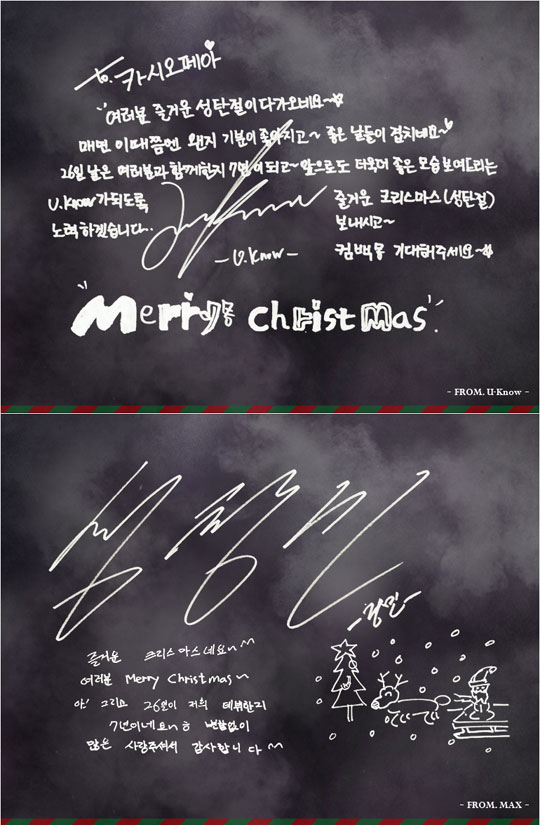 to. 카시오페아
여러분 즐거운 성탄절이 다가오네요~
매번 이때쯤엔 왠지 기분이 좋아지고~ 좋은 날들이 겹치네요~
26일 날은 여러분과 함께한지 7년이 되고~ 앞으로도 더욱더 좋은 모습 보여드리는
U.Know가 되도록
노력하겠습니다..
즐거운 크리스마스(성탄절)
보내시고~
컴백 기대해주세요~
- U.Know -
Merry Christmas
- FROM. U-Know -
- 창민 -
즐거운 크리스마스네요~^^
여러분 Merry Christmas~
아! 그리고 26일이 저희 데뷔한지
7년이네요~ㅎ 변함없이
많은 사랑주셔서 감사합니다^^
- FROM. MAX -